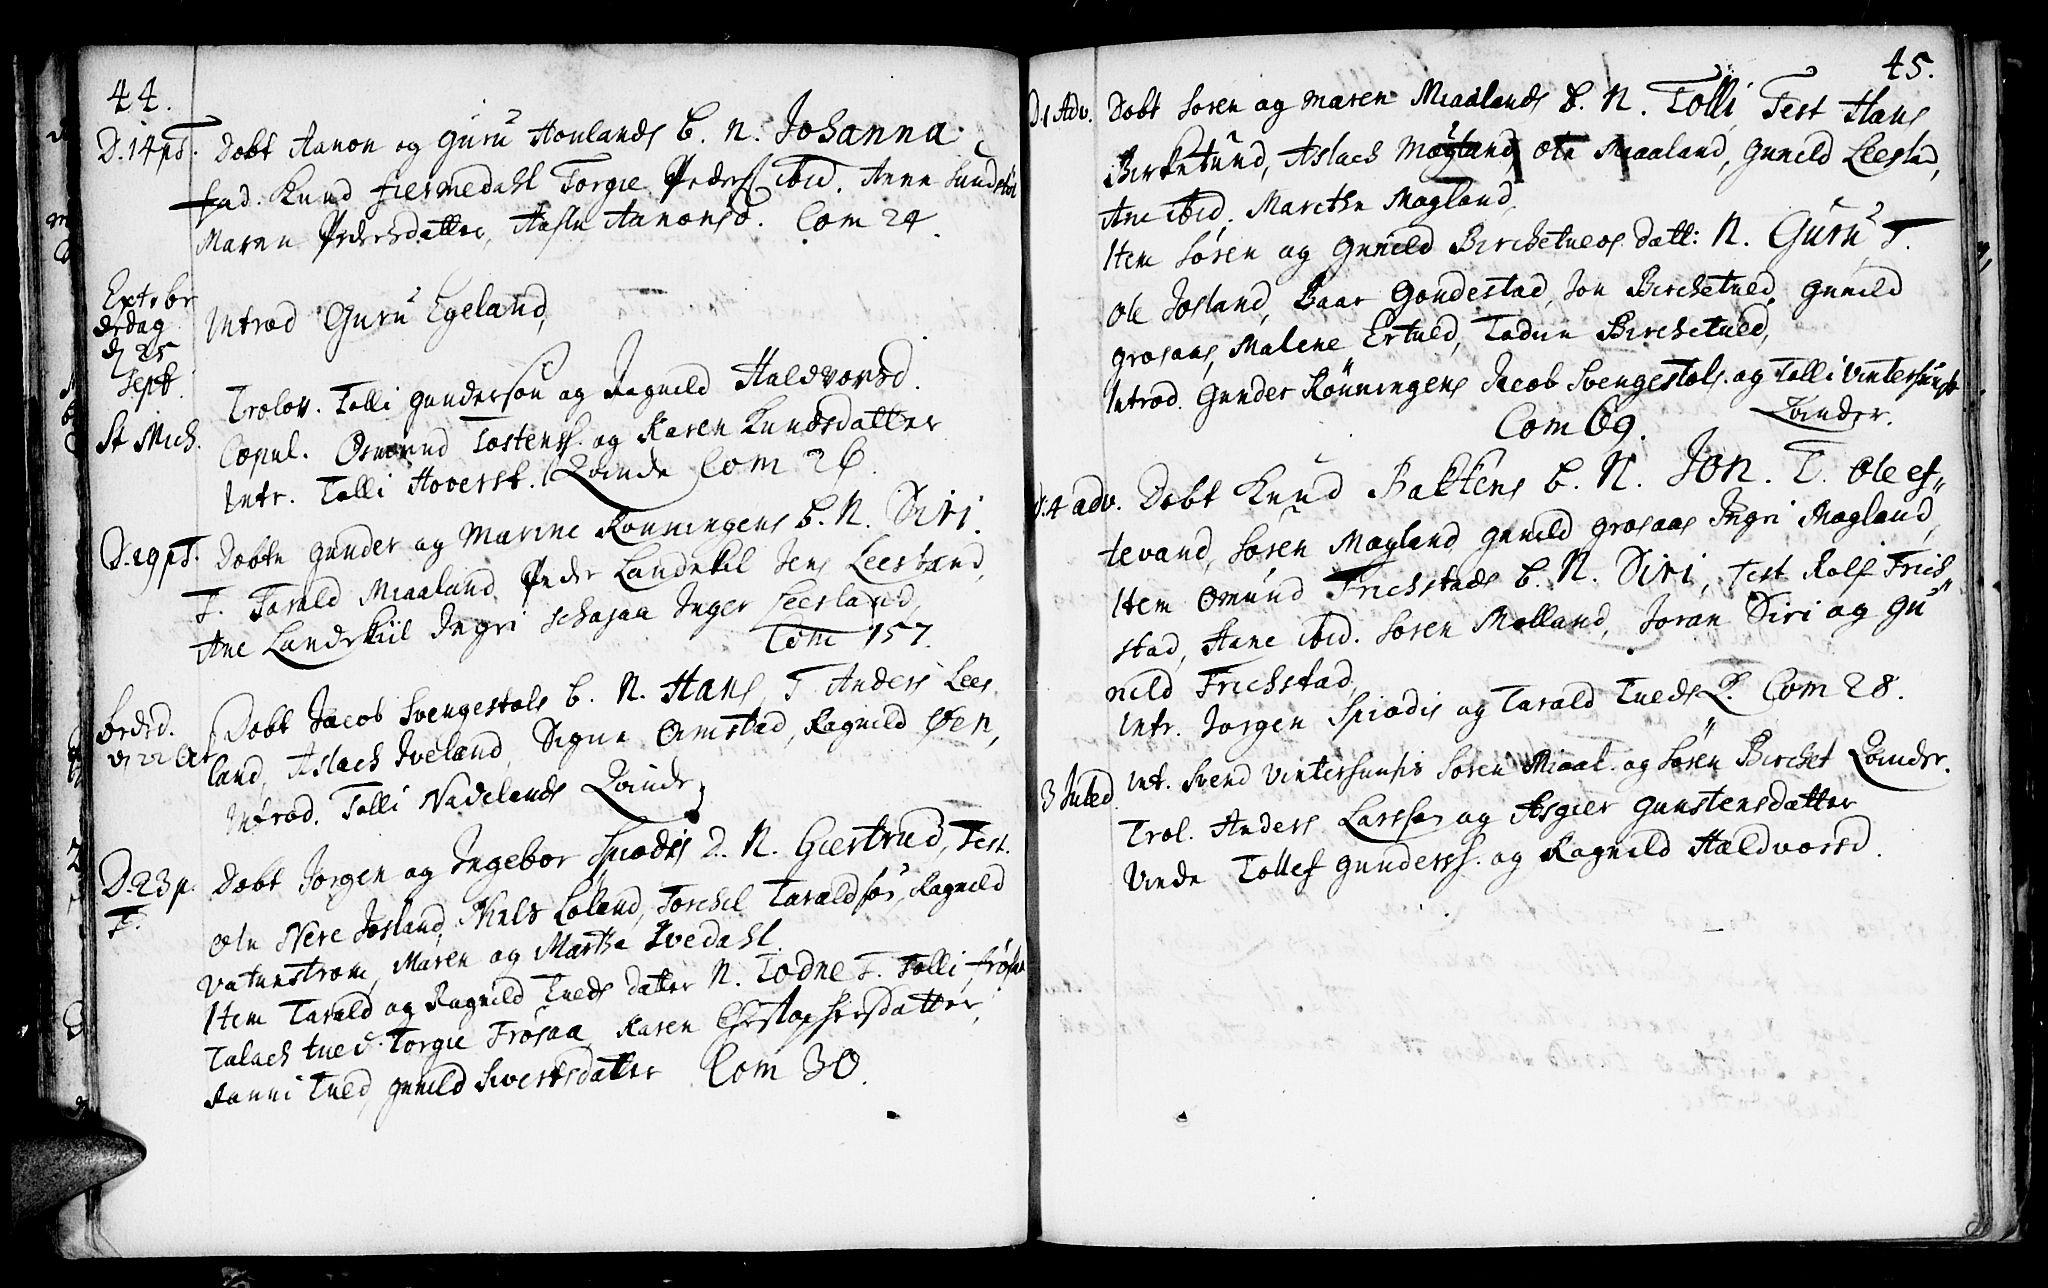 44.
D. 14 p T. Døbt Aanon og Guru Honlands b. N. Johanna.
fad. Knud fiermedahl Torgie Peders. ibid. Anne Sundstøl
Maren Pedersdatter, Aaslu Aanonsd. Com 24.
Extr. br
ørdag
d 25
Sept.
Introd Guru Egeland,
Trolov. Tolli Gunderson og Ragnild Haldvorsd.
St Mich. Copul. Osmund Tostens. og Karen Knudsdatter
Intr. Tolli Hoverst. Qvinde Com 26.
D. 19 p T. Døbte Gunder og Marine Rønningens b. N. Siri.
T. Tarald Miaaland Peder Landskil Jens Leesland,
Ane Landskiil Ingri schasaa Inger Leesland,
Com 157.
bededd.
d 22 Oct Døbt Jacob Svengestols b. N. Hans T. Anders Lees
land, Aslach Iveland, Signe Omstad, Ragnild Øen,
Introd. Tolli Nadelands Qvinde
D. 23 p.
T. Døbt Jorgen og Ingebor Spiødis D. N. Giertrud, Test.
Ole Nere Josland, Niels Loland, Torchel Taraldsøs, Ragnild
Vatnestrøm, Maren og Martha Ivedahl.
Item Tarald og Ragnild Tveds datter N. Todne T. Tolli frøsaa
Talach tved. Torgie Frøsaa Karen Christophersdatter,
Ranni Tved, gunild Sivertsdatter Com 30.
45.
D. 1 Adv. Døbt Soren og Maren Miaalands b. N. Tolli Test Hans
Birketund, Aslach Møgland, Ole Miaaland, Gunild Leesland,
Ane ibid. Marethe Møgland,
Item Søren og Gunild Birchetveds datt: N. Guru T.
Ole Josland, Baar Goudestad, Jon Birchetved, Gunild
grosaas, Malene Ertved, Todne Birchetved,
Introd. Gunder Rönningens Jacob Svengestols. og Tolli Vintersunsb.
Com 69. Qvinder.
D. 4 adv. Døbt Knud Bakkens b. N. Jon. T. Ole es„
tevand, Søren Møgland gunild grosaas Ingri Møgland,
Item Omund Frichstads b. N. Siri, Test Rolf Frich„
stad, Hane ibid. Soren Molland, Joran Siri og gu„
nild Frichstad,
Intr. Jorgen Spiødis og Tarald Tveds Q. Com 28.
3 Juled. Int. Svend Vintersunsis Soren Miaal. og Søren Birchet Qvinder.
Trol. Anders Larssøn og Asgier Gunstensdatter
Viede Tollef gunders. og Ragnild Haldvorsd.